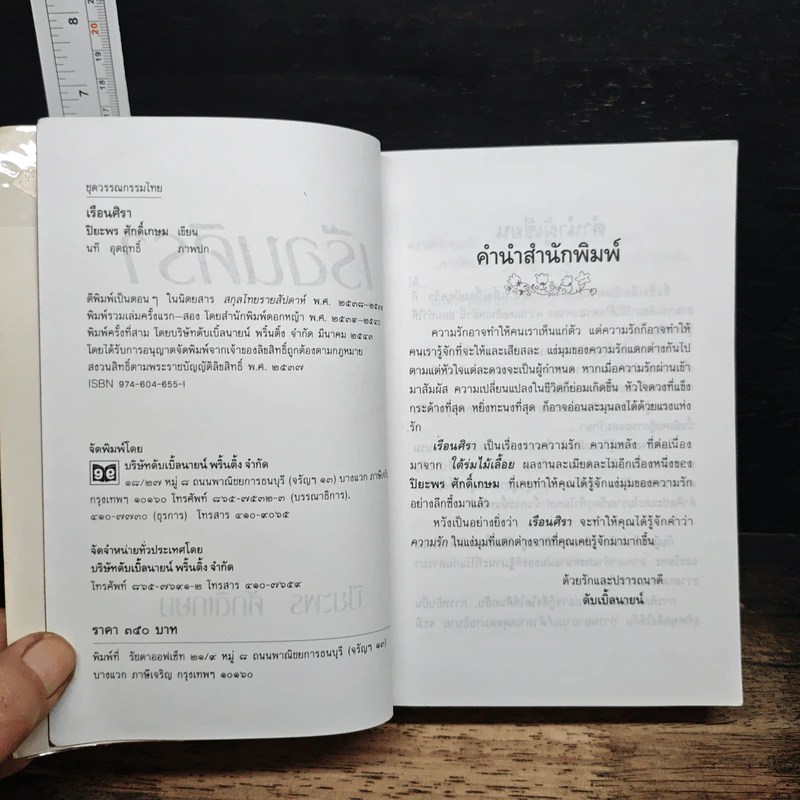 8
20
19
7
18
17
ชุดวรรณกรรมไทย
เรือนศิรา
ปิยะพร ศักดิ์เกษม เขียน
นที อุตฤทธิ์ ภาพปก
ตีพิมพ์เป็นตอนๆ ในนิตยสาร สกุลไทยรายสัปดาห์ พ.ศ. ๒๕๓๘-๒๕๓๙
พิมพ์รวมเล่มครั้งแรก-สอง โดยสำนักพิมพ์ดอกหญ้า พ.ศ. ๒๕๓๙-๒๕๔๐
พิมพ์ครั้งที่สาม โดยบริษัทดับเบิ้ลนายน์ พริ้นติ้ง จำกัด มีนาคม ๒๕๔๓
โดยได้รับการอนุญาตจัดพิมพ์จากเจ้าของลิขสิทธิ์ถูกต้องตามกฎหมาย
สงวนสิทธิ์ตามพระราชบัญญัติลิขสิทธิ์ พ.ศ. ๒๕๓๗
ISBN 974-604-655-1
จัดพิมพ์โดย
บริษัทดับเบิ้ลนายน์ พริ้นติ้ง จำกัด
๑๘/๒๗ หมู่ ๘ ถนนพาณิชยการธนบุรี (จรัญฯ ๑๓) บางแวก ภาษีเจริญ
กรุงเทพฯ ๑๐๑๖๐ โทรศัพท์ ๘๖๕-๗๕๓๒-๓ (บรรณาธิการ),
๔๑๐-๗๗๓๐ (ธุรการ) โทรสาร ๔๑๐-๙๐๖๕
จัดจำหน่ายทั่วประเทศโดย
บริษัทดับเบิ้ลนายน์ พริ้นติ้ง จำกัด
โทรศัพท์ ๘๖๕-๗๖๙๑-๒ โทรสาร ๔๑๐-๗๖๕๙
ราคา ๓๔๐ บาท
พิมพ์ที่ รัชดาออฟเซ็ท ๒๑/๙ หมู่ ๘ ถนนพาณิชยการธนบุรี (จรัญฯ ๑๓)
บางแวก ภาษีเจริญ กรุงเทพฯ ๑๐๑๖๐
คำนำสำนักพิมพ์
ความรักอาจทำให้คนเราเห็นแก่ตัว แต่ความรักก็อาจทำให้
คนเรารู้จักที่จะให้และเสียสละ แง่มุมของความรักแตกต่างกันไป
ตามแต่หัวใจแต่ละดวงจะเป็นผู้กำหนด หากเมื่อความรักผ่านเข้า
มาสัมผัส ความเปลี่ยนแปลงในชีวิตก็ย่อมเกิดขึ้น หัวใจดวงที่แข็ง
กระด้างที่สุด หยิ่งทะนงที่สุด ก็อาจอ่อนละมุนลงได้ด้วยแรงแห่ง
รัก
เรือนศิรา เป็นเรื่องราวความรัก ความหลัง ที่ต่อเนื่อง
มาจาก ใต้ร่มไม้เลื้อย ผลงานละเมียดละไมอีกเรื่องหนึ่งของ
ปิยะพร ศักดิ์เกษม ที่เคยทำให้คุณได้รู้จักแง่มุมของความรัก
อย่างลึกซึ้งมาแล้ว
หวังเป็นอย่างยิ่งว่า เรือนศิรา จะทำให้คุณได้รู้จักคำว่า
ความรัก ในแง่มุมที่แตกต่างจากที่คุณเคยรู้จักมามากขึ้น
ด้วยรักและปรารถนาดี
ดับเบิ้ลนายน์